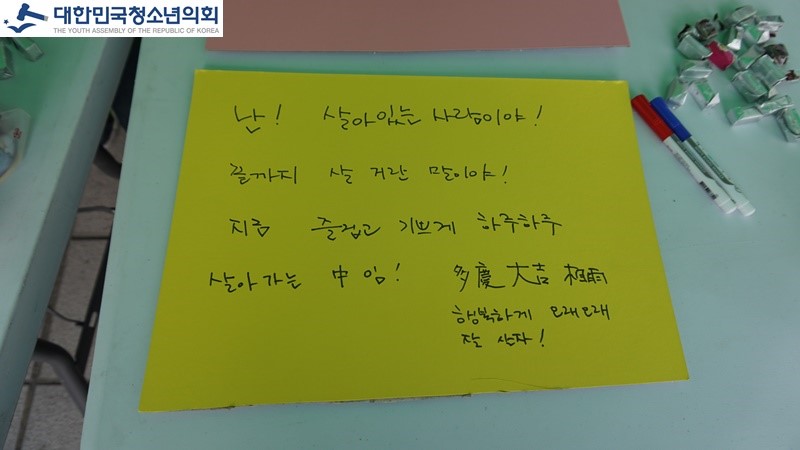 대한민국청소년의회
THE YOUTH ASSEMBLY OF THE REPUBLIC OF KOREA
난! 살아있는 사람이야!
끝까지 살 거란 말이야!
지금 즐겁고 기쁘게 하루하루
살아가는 中임! 多慶大吉
행복하게 오래오래
잘 살자!